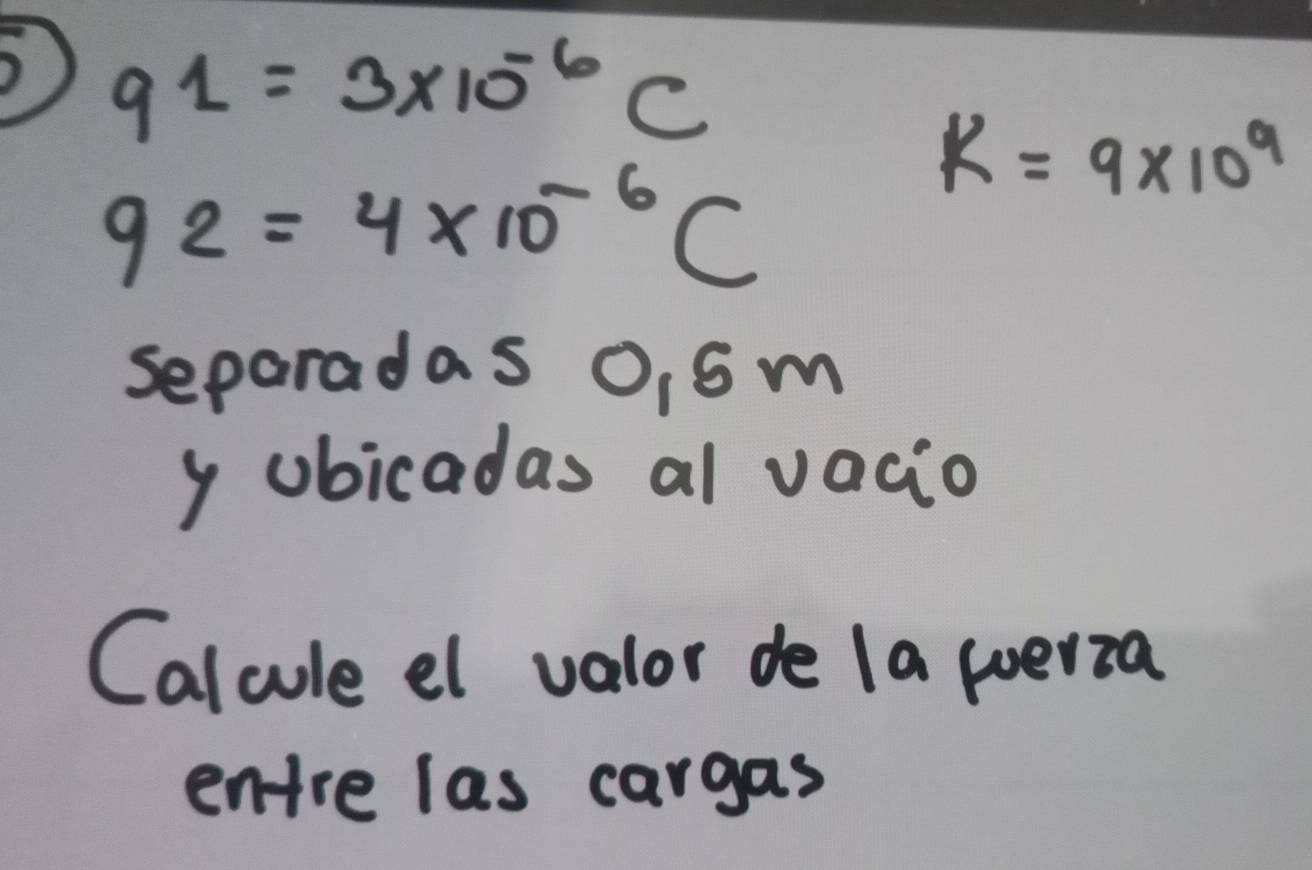 5) q1 = 3x10⁻⁶ C
K = 9x10⁹
q2 = 4x10⁻⁶ C
separadas 0,5m
y ubicadas al vacio
Calcule el valor de la fuerza
entre las cargas